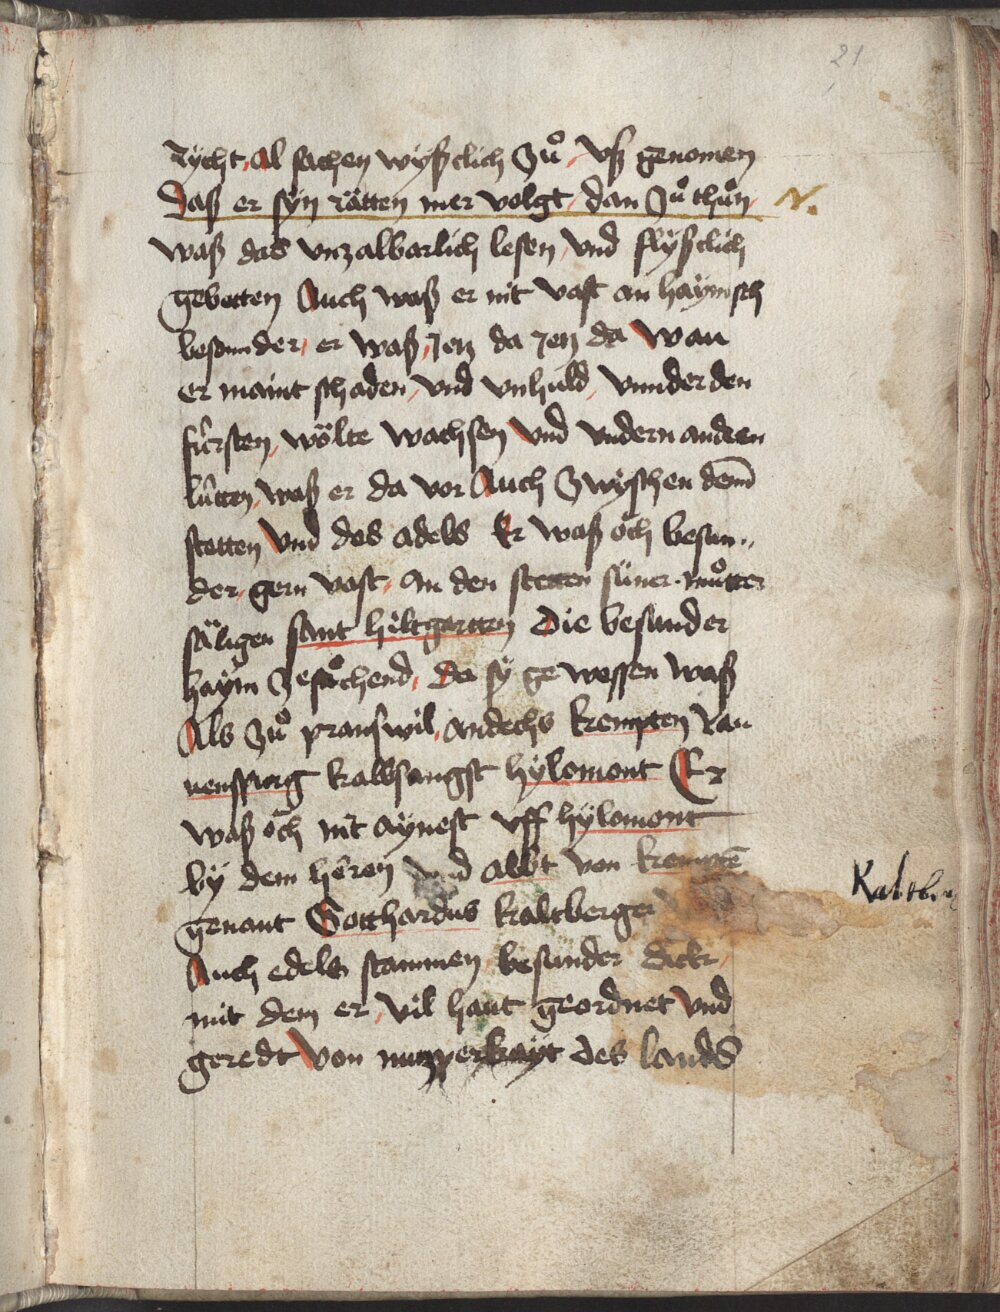 21
rycht, al sachen wyßclich zuͦ, vß genomen
Daß er syn rätten mer volgt, dan zuͦ thuͦn, N.
waß das vnzalbarlich lesen, vnd flyßclich
gebetten Auch waß er nit vast an haymsch
besunder, er waß, Jetz da Jetz da Wan
er maint schaden, vnd vnhuld, vnnder den
fürsten, wölte wachsen Vnd vndern andren
lütten, waß er da vor Auch Zwyschen dem̄
stetten Vnd des adels Er waß och besun„
der, gern vast, an den stetten siner muͦtter
säligen sant hiltgartten Die besunder
haym Zesuͦchend, da sy ge wessen waß
Als zuͦ pranswil, andechs kempten Rau
nenspurg kallsangst hylomont Er
waß och nit aynest vff hylomont
by dem heren vnd abbt von kempte
genant Gotthardus kaltberger
Auch edels stammen besunder dick,
mit dem er, vil haut geordnet Vnd
geredt Von nutzperkayt des lands